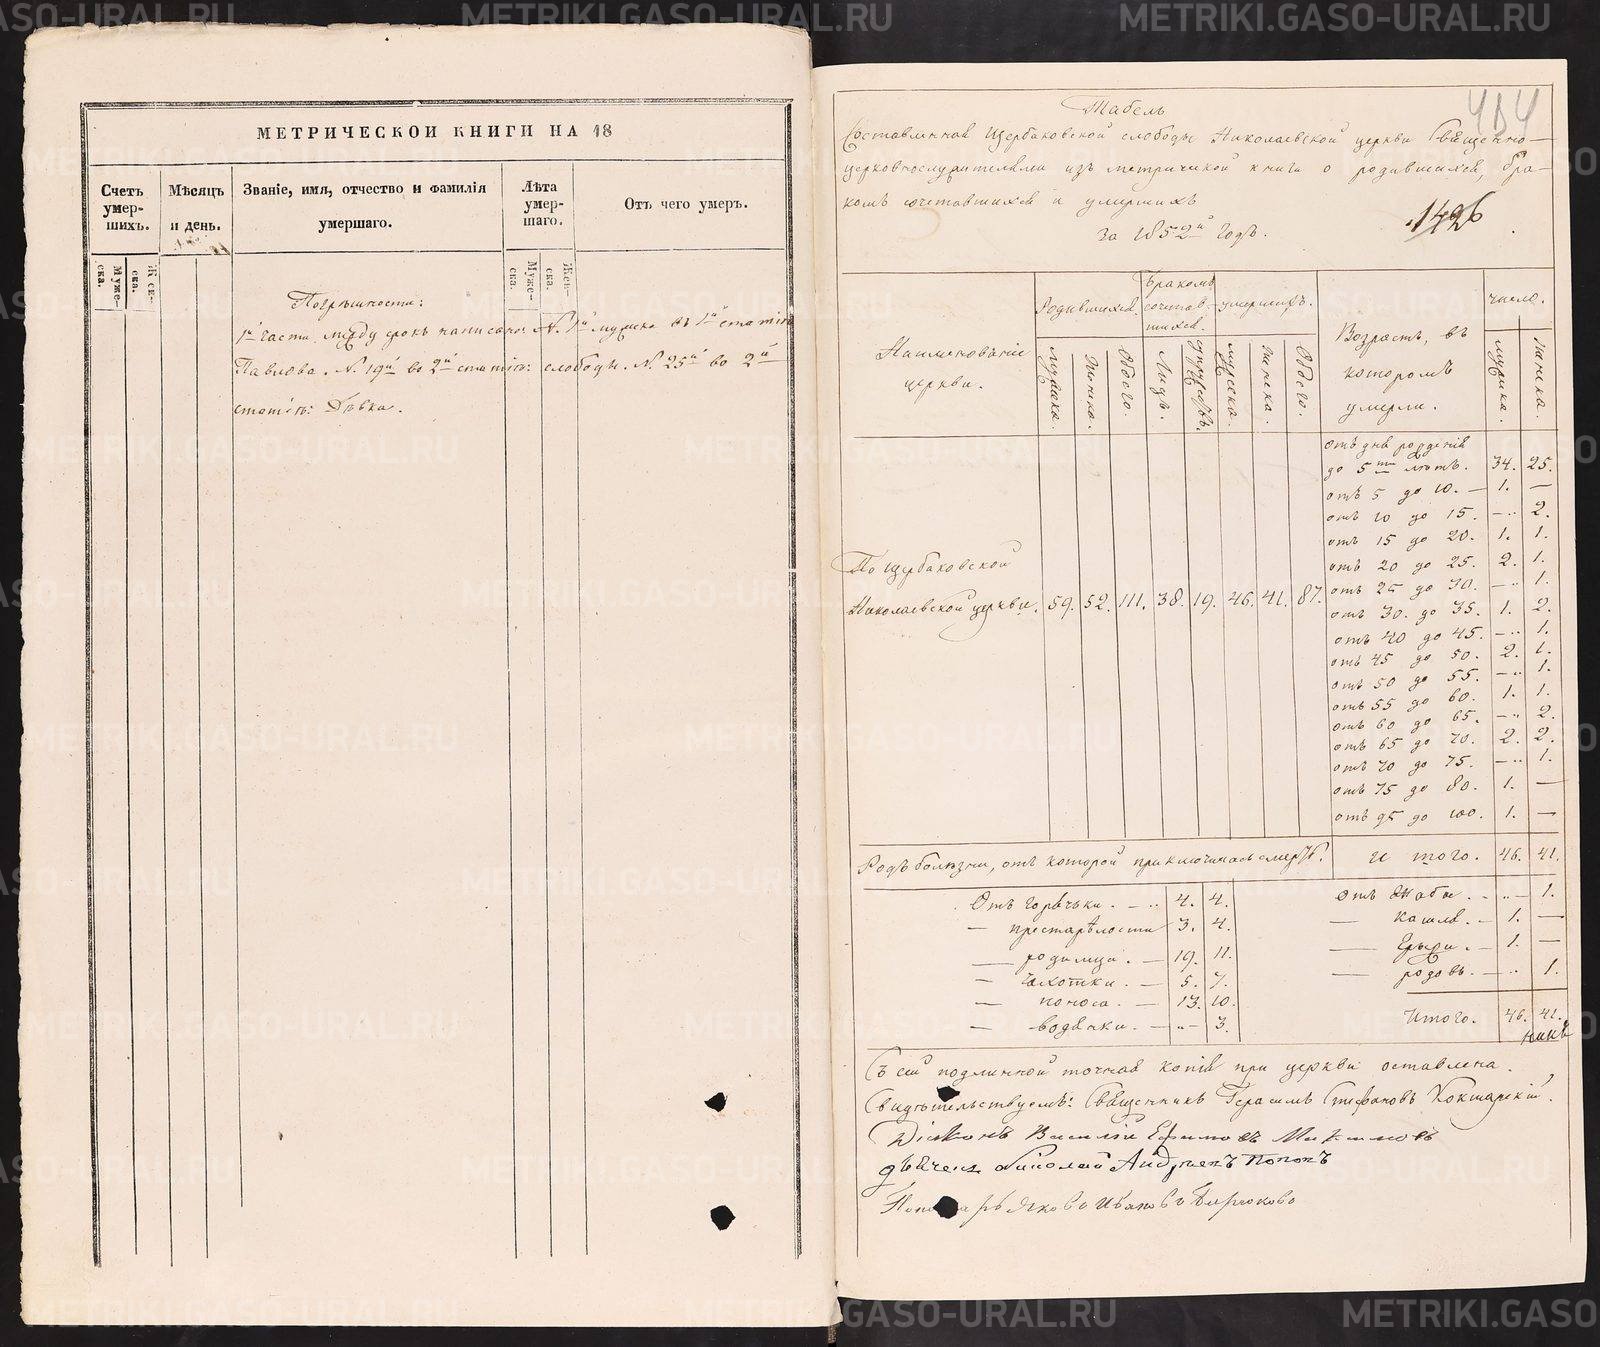 МЕТРИЧЕСКОЙ КНИГИ НА 18
Счетъ умер-шихъ.
Мѣсяцъ и день.
Званіе, имя, отчество и фамилія умершаго.
Лѣта умер-шаго.
Отъ чего умеръ.
Муже-ска.
Жен-ска.
Муже-ска.
Жен-ска.
Погрѣшности:
1й части между строкъ написано: № 1й мужска въ 1й статьѣ
Павлова. № 19й во 2й статьѣ: слободы. № 25й во 2й
статьѣ: Дѣвка.
484
Табель
Составленная Щербаковской слободы Николаевской церкви Священно-
церковнослужителями изъ метрической книги о родившихся, бра-
комъ сочетавшихся и умершихъ
за 1852й годъ.
1426
Наименованіе церкви.
Родившихся.
Бракомъ сочетав-шихся.
умершихъ.
Возрастъ, въ которомъ умерли.
число.
мужска.
женска.
Обоего.
Лицъ.
супружествъ.
мужска.
женска.
Обоего.
мужска.
женска.
По Щербаковской
Николаевской церкви. 59. 52. 111. 38. 19. 46. 41. 87.
отъ дня рожденія
до 5ти лѣтъ. 34. 25.
отъ 5 до 10. — 1. —
отъ 10 до 15. — 2.
отъ 15 до 20. 1. 1.
отъ 20 до 25. 2. 1.
отъ 25 до 30. — 1.
отъ 30. до 35. 1. 2.
отъ 40 до 45. — 1.
отъ 45 до 50. 2. 1.
отъ 50 до 55. — 1.
отъ 55 до 60. 1. 1.
отъ 60 до 65. — 2.
отъ 65 до 70. 2. 2.
отъ 70 до 75. — 1.
отъ 75 до 80. 1. —
отъ 95 до 100. 1. —
Родъ болѣзни, отъ которой приключилась смерть. И того. 46. 41.
Отъ горячки. — 4. 4.
— престарѣлости 3. 4.
— родимца. — 19. 11.
— чахотки. — 5. 7.
— поноса. — 13. 10.
— водянки. — 3.
Отъ жабы. — 1.
— кашля. — 1. —
— грыжи. — 1. —
— родовъ. — 1.
Итого. 46. 41.
Съ сей подлинной точная копія при церкви оставлена.
Свидѣтельствуемъ: Священникъ Герасимъ Стефановъ Кокшарскій.
Діяконъ Василій Ефимовъ Максимовъ
дьячекъ Николай Андреевъ Поповъ
Пономарь Яковъ Ивановъ Бирюковъ
METRIKI.GASO-URAL.RU